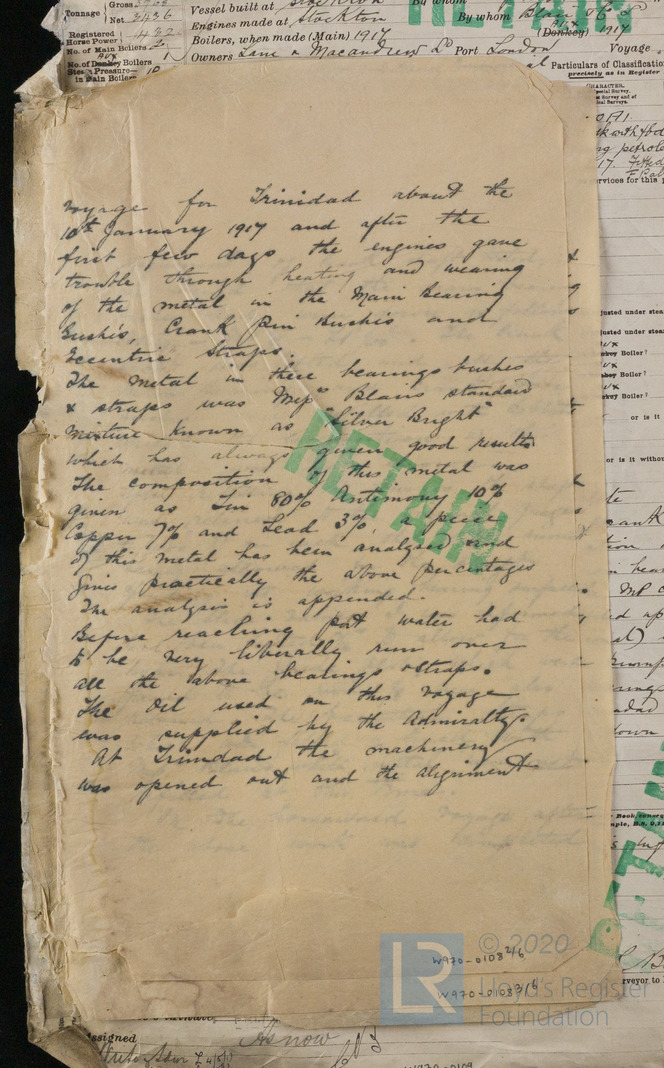 Tonnage
Gross
Net 3436
Registered
Horse Power
No. of Main Boilers 2
No. of Donkey Boilers 1
Steam Pressure
in Main Boilers
Vessel built at
By whom
Engines made at Stockton
By whom Blair & Co Ld
Boilers, when made (Main) 1917
(Donkey) 1917
Owners Lane & Macandrew Ld Port London
Voyage
Particulars of Classification
precisely as in Register
CHARACTER.
voyage for Trinidad about the
10th January 1917 and after the
first few days the engines gave
trouble through heating and wearing
of the metal in the Main Bearing
Bushes, Crank Pin Bushes and
Eccentric Straps.
The metal in these bearings bushes
& straps was Messrs Blairs standard
mixture known as "Silver Bright"
which has always given good results
The composition of this metal was
given as Tin 80% Antimony 10%
Copper 7% and Lead 3%, a piece
of this metal has been analysed and
gives practically the above percentages
The analysis is appended.
Before reaching port water had
to be very liberally run over
all the above bearings & straps.
The oil used on this voyage
was supplied by the Admiralty.
At Trinidad the machinery
was opened out and the alignment
RETAIN
W970-0108 2/6
W970-0108 3/6
LR
© 2020
Lloyd's Register
Foundation
Assigned
As now
W970-0109